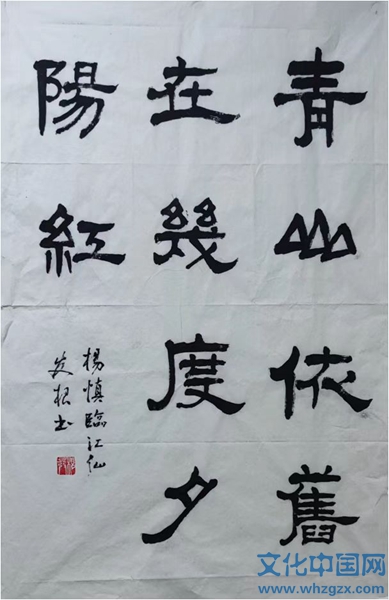 青山依舊
在幾度夕
陽紅
楊慎臨江仙
发根书
文化中国网
www.whzgzx.com